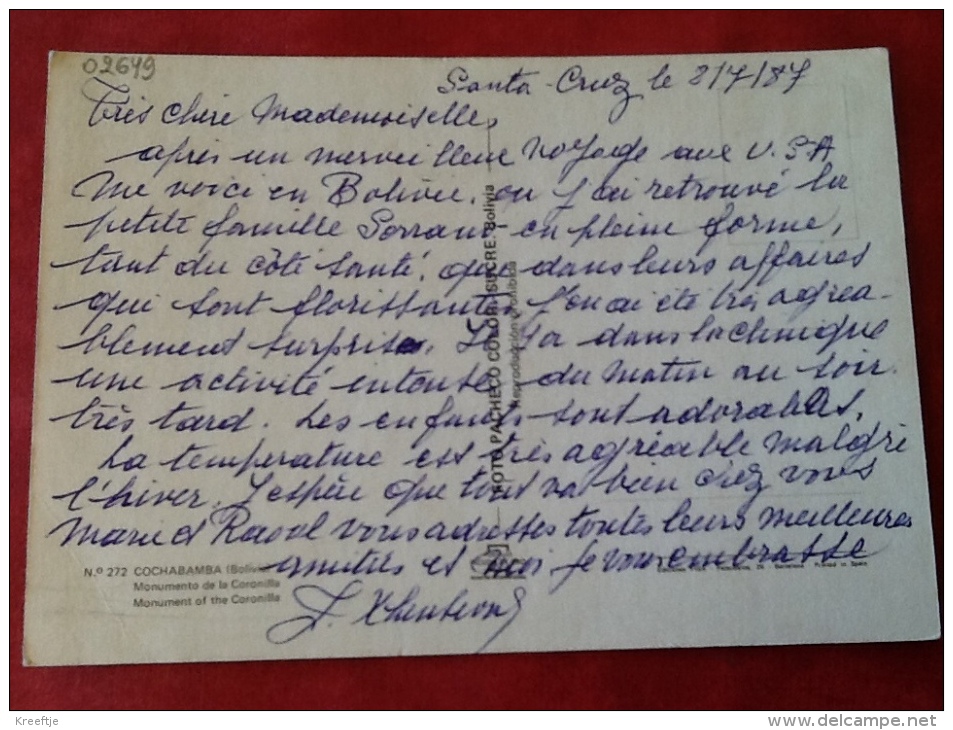 02649
Santa-Cruz le 8/7/87
Très chère Mademoiselle,
après un merveilleux voyage aux U.S.A
me voici en Bolivie. ou j'ai retrouvé la
petite famille en pleine forme,
tant du côté santé. que dans leurs affaires
qui sont florissantes, J'en ai été très agréa-
blement surprise. Il y a dans la clinique
une activité intense du matin au soir.
très tard. Les enfants sont adorables.
La température est très agréable malgré
l'hiver. J'espère que tout va bien chez vous
Marie et Raoul vous adresses toutes leurs meilleures
amitiés et moi je vous embrasse
FOTO PACHECO COLOR. SUCRE. Bolivia
Reproducción prohibida
N.º 272 COCHABAMBA (Bolivia)
Monumento de la Coronilla
Monument of the Coronilla
Printed in Spain
Kreeftje
delcampe.net